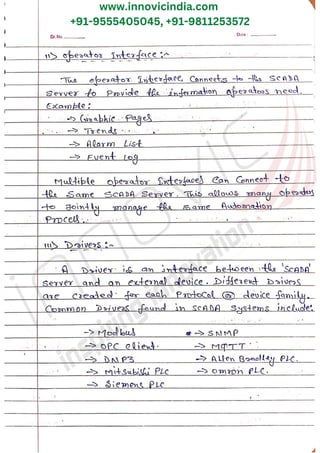 www.innovicindia.com
+91-9555405045, +91-9811253572
Sr.No.
Date
ii) operator Interface :-
The operator Interface Connects to the SCADA
Server to Provide the information operators need.
Example:
-> Graphic Pages
-> Trends
-> Alarm List
-> Event Log
Multible operator Interfaces Can Connect to
the Same SCADA Server. This allows many operators
to Jointly manage the Same Automation
Process.
iii) Drivers :-
A Driver is an interface between the 'SCADA'
Server and an external device. Different Drivers
are created for each Protocol @ device family.
Common Drivers found in SCADA Systems include:
-> Modbus -> SNMP
-> OPC Client. -> MQTT
-> DNP3 -> Allen Bradley PLC.
-> Mitsubishi PLC -> omron PLC.
-> Siemens PLC